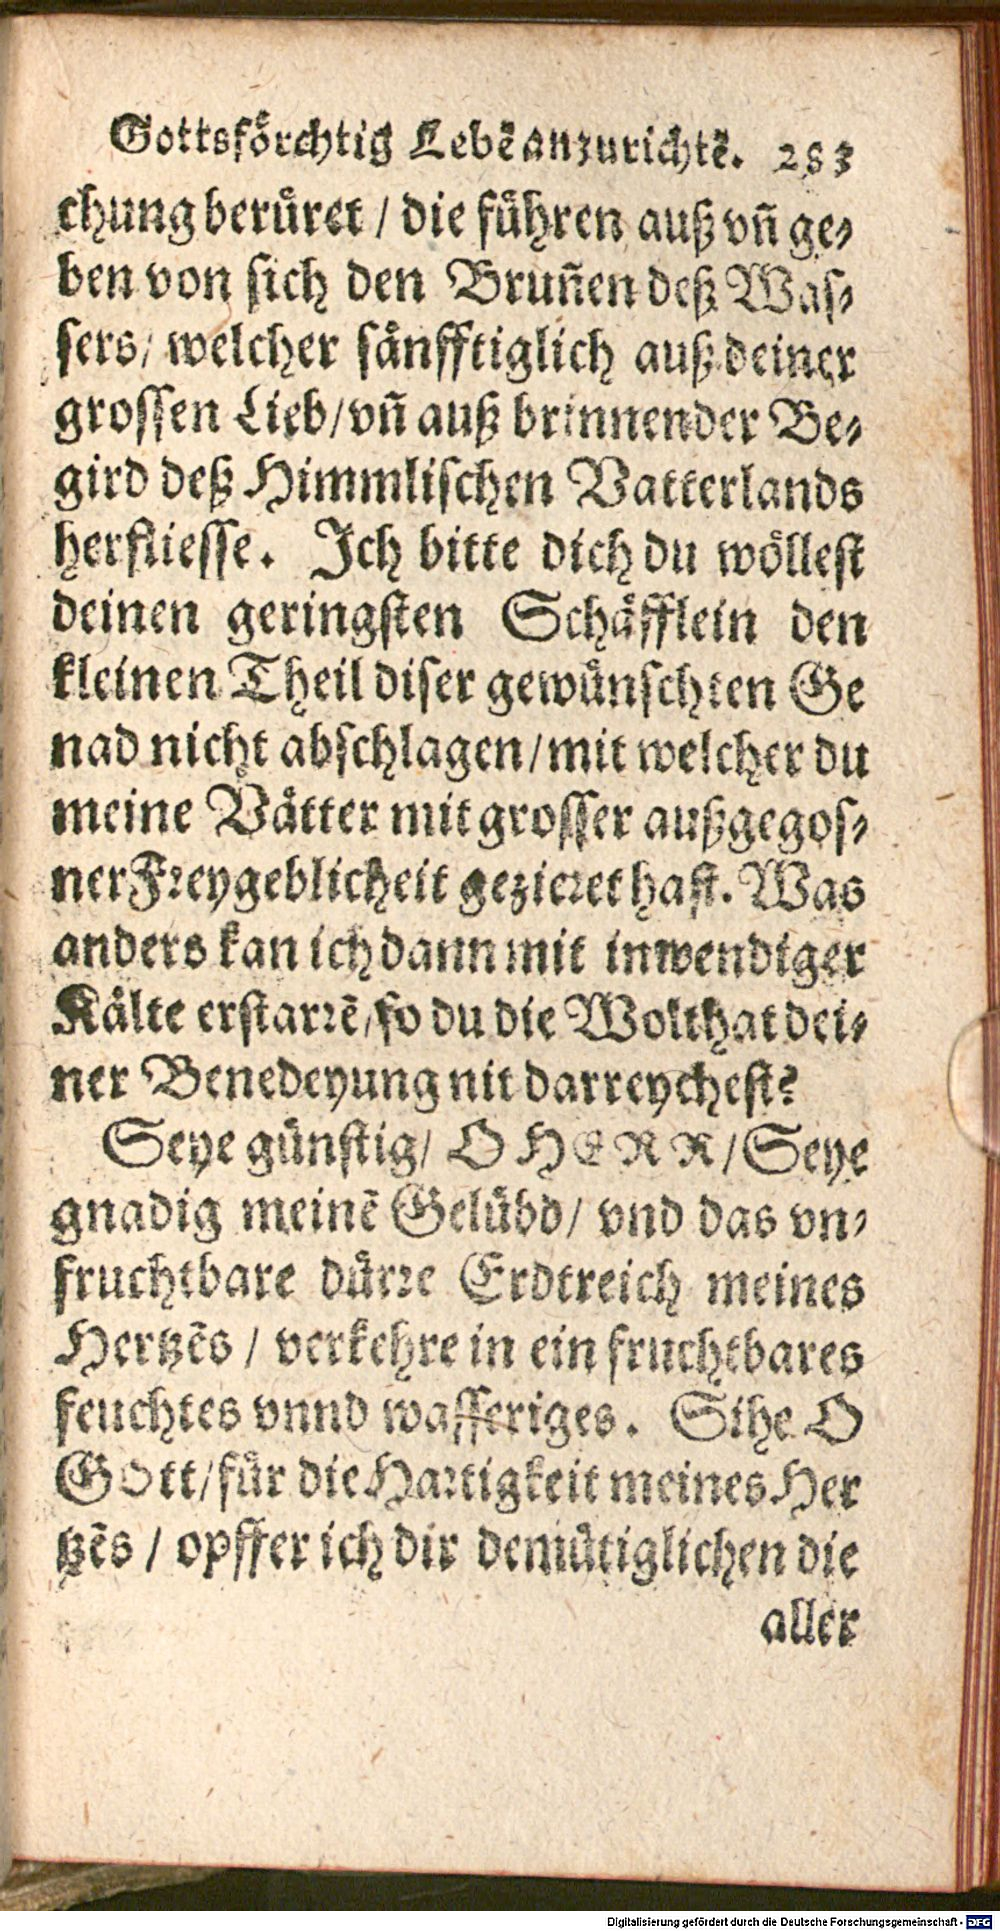 Gottsförchtig Lebē anzurichtē. 283
chung berüret / die führen auß vñ ge-
ben von sich den Bruñen deß Was-
sers / welcher sänfftiglich auß deiner
grossen Lieb / vñ auß brinnender Be-
gird deß Himmlischen Vatterlands
herfliesse. Ich bitte dich du wöllest
deinen geringsten Schäfflein den
kleinen Theil diser gewünschten Ge
nad nicht abschlagen / mit welcher du
meine Vätter mit grosser außgegos-
ner Freygeblicheit gezieret hast. Was
anders kan ich dann mit inwendiger
Kälte erstarrē / so du die Wolthat dei-
ner Benedeyung nit darreychest?
Seye günstig / O HERR / Seye
gnadig meinē Gelübd / vnd das vn-
fruchtbare dürre Erdtreich meines
Hertzēs / verkehre in ein fruchtbares
feuchtes vnnd wasseriges. Sihe O
GOtt / für die Hartigkeit meines Her
tzēs / opffer ich dir demütiglichen die
aller
Digitalisierung gefördert durch die Deutsche Forschungsgemeinschaft - DFG